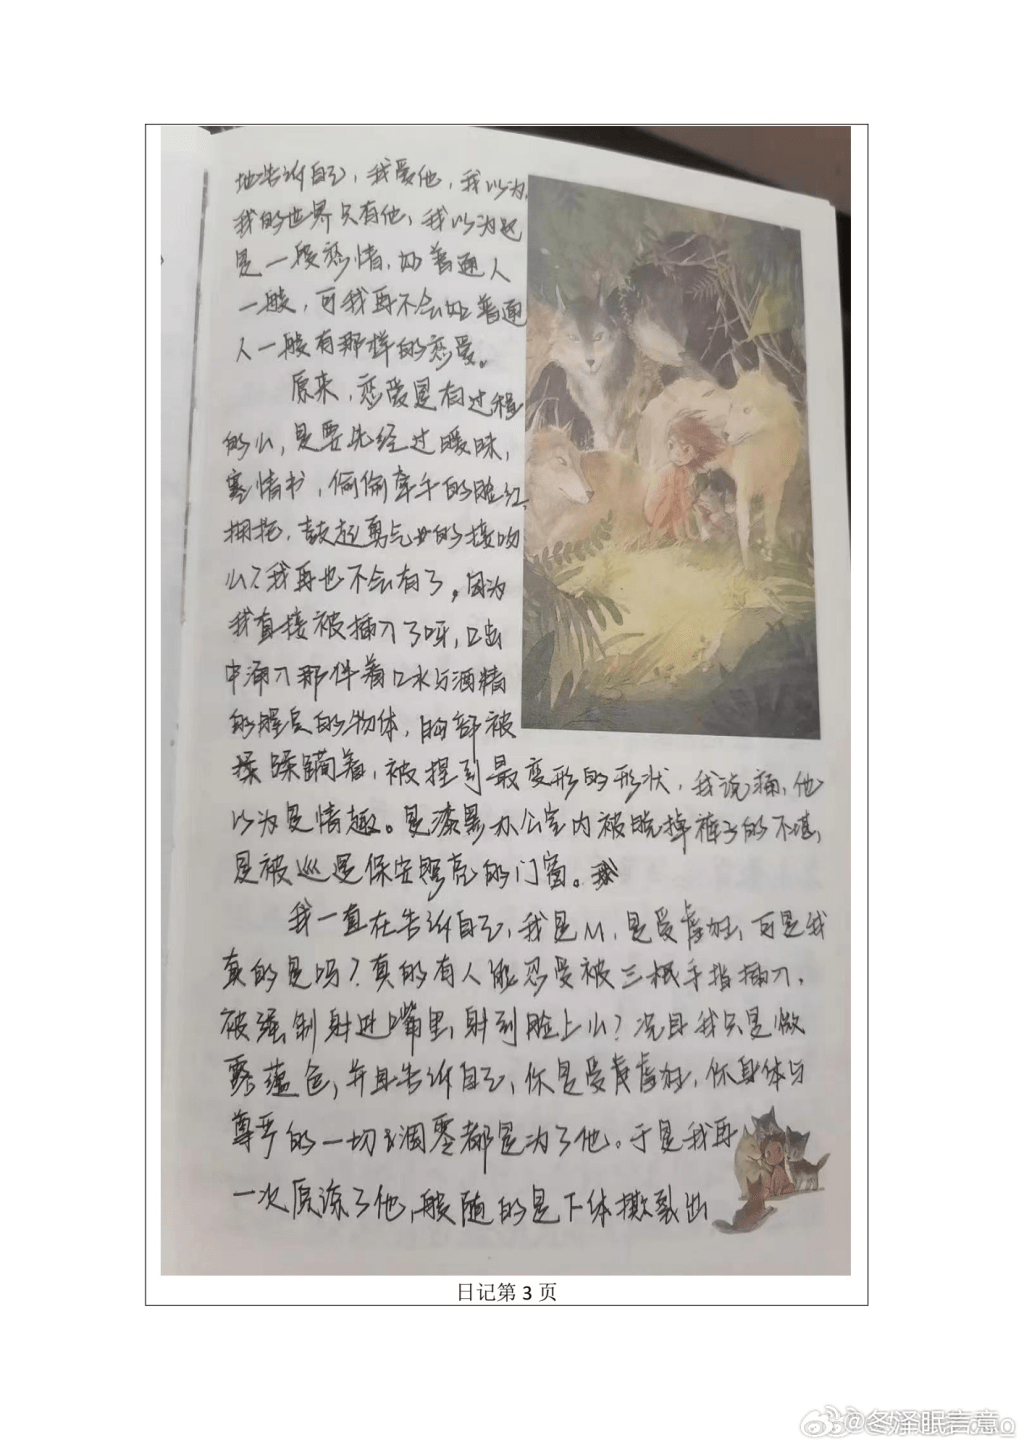 地告诉自己，我爱他，我以为，
我的世界只有他，我以为这
是一段恋情，如普通人
一般，可我再不会如普通
人一般有那样的恋爱。
原来，恋爱是有过程
的么，是要先经过暧昧，
写情书，偷偷牵手的脸红，
拥抱，鼓起勇气的接吻
么？我再也不会有了。因为
我直接被插入了呀，口齿
中涌入那伴着口水与酒精
的腥臭的物体，胸部被
揉蹂躏着，被捏到最变形的形状，我说痛，他
以为是情趣。是漆黑办公室内被脱掉裤子的不堪，
是被巡逻保安照亮的门窗。
我一直在告诉自己，我是M，是受虐狂，可是我
真的是吗？真的有人能忍受被三根手指插入，
被强制射进嘴里，射到脸上么？况且我只是做
，并且告诉自己，你是受虐狂，你身体与
尊严的一切凋零都是为了他。于是我再
一次原谅了他，伴随的是下体撕裂出
日记第 3 页
@冬泽眠言意